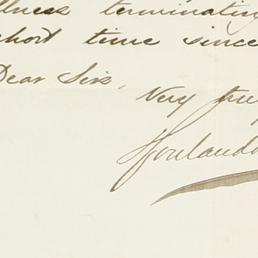 llness terminating
short time since
Dear Sir,
Very tru